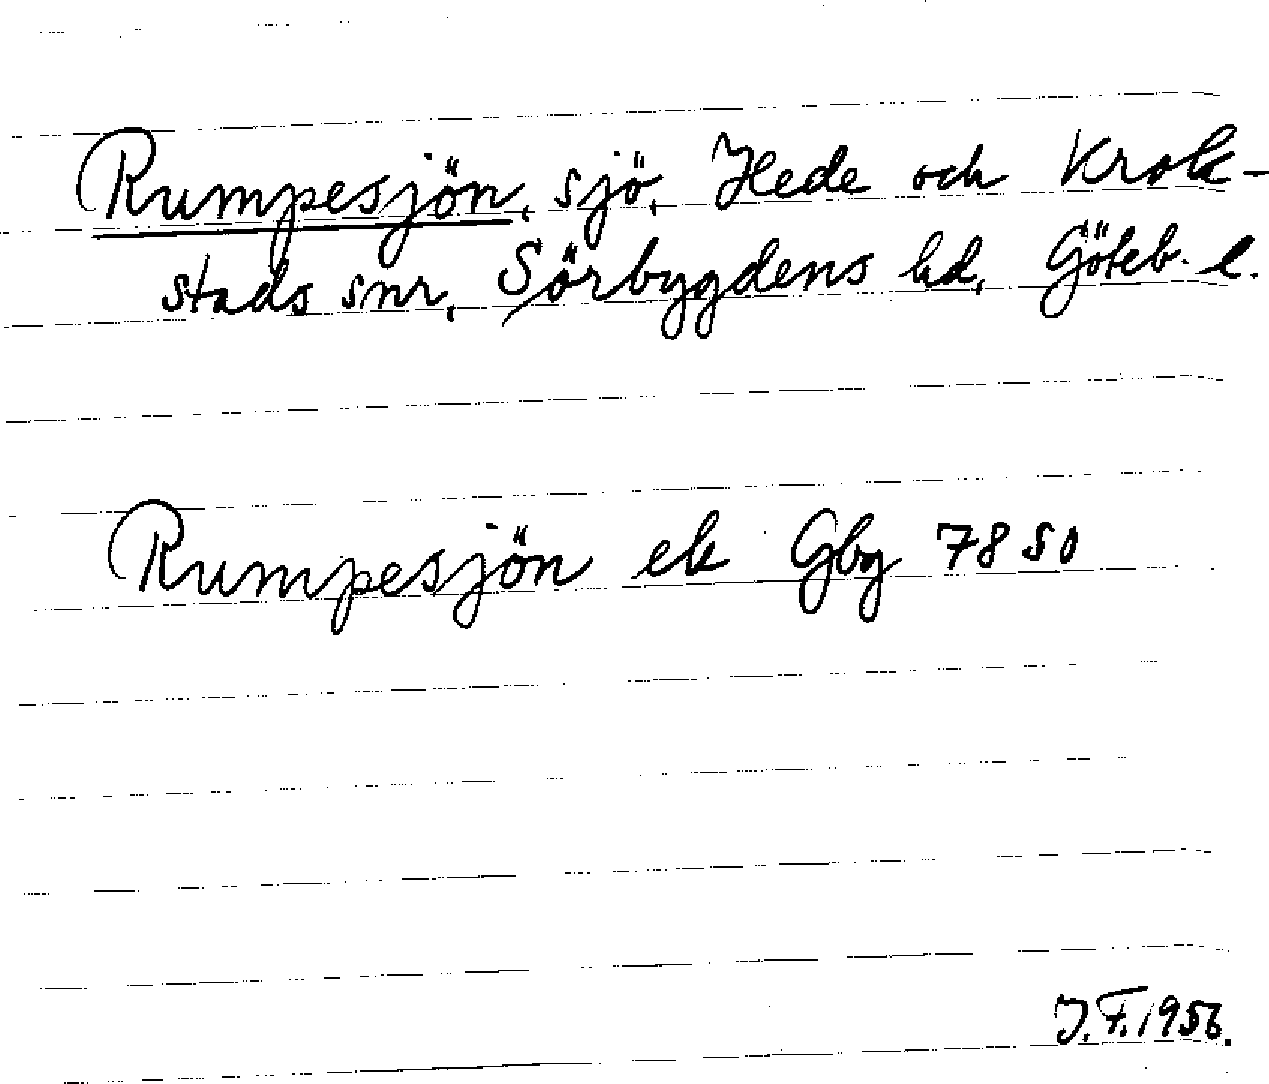 Rumpesjön, sjö, Hede och Krok-
stads snr, Sörbygdens hd, Göteb. l.
Rumpesjön ek Gbg 7850
J.F. 1956.